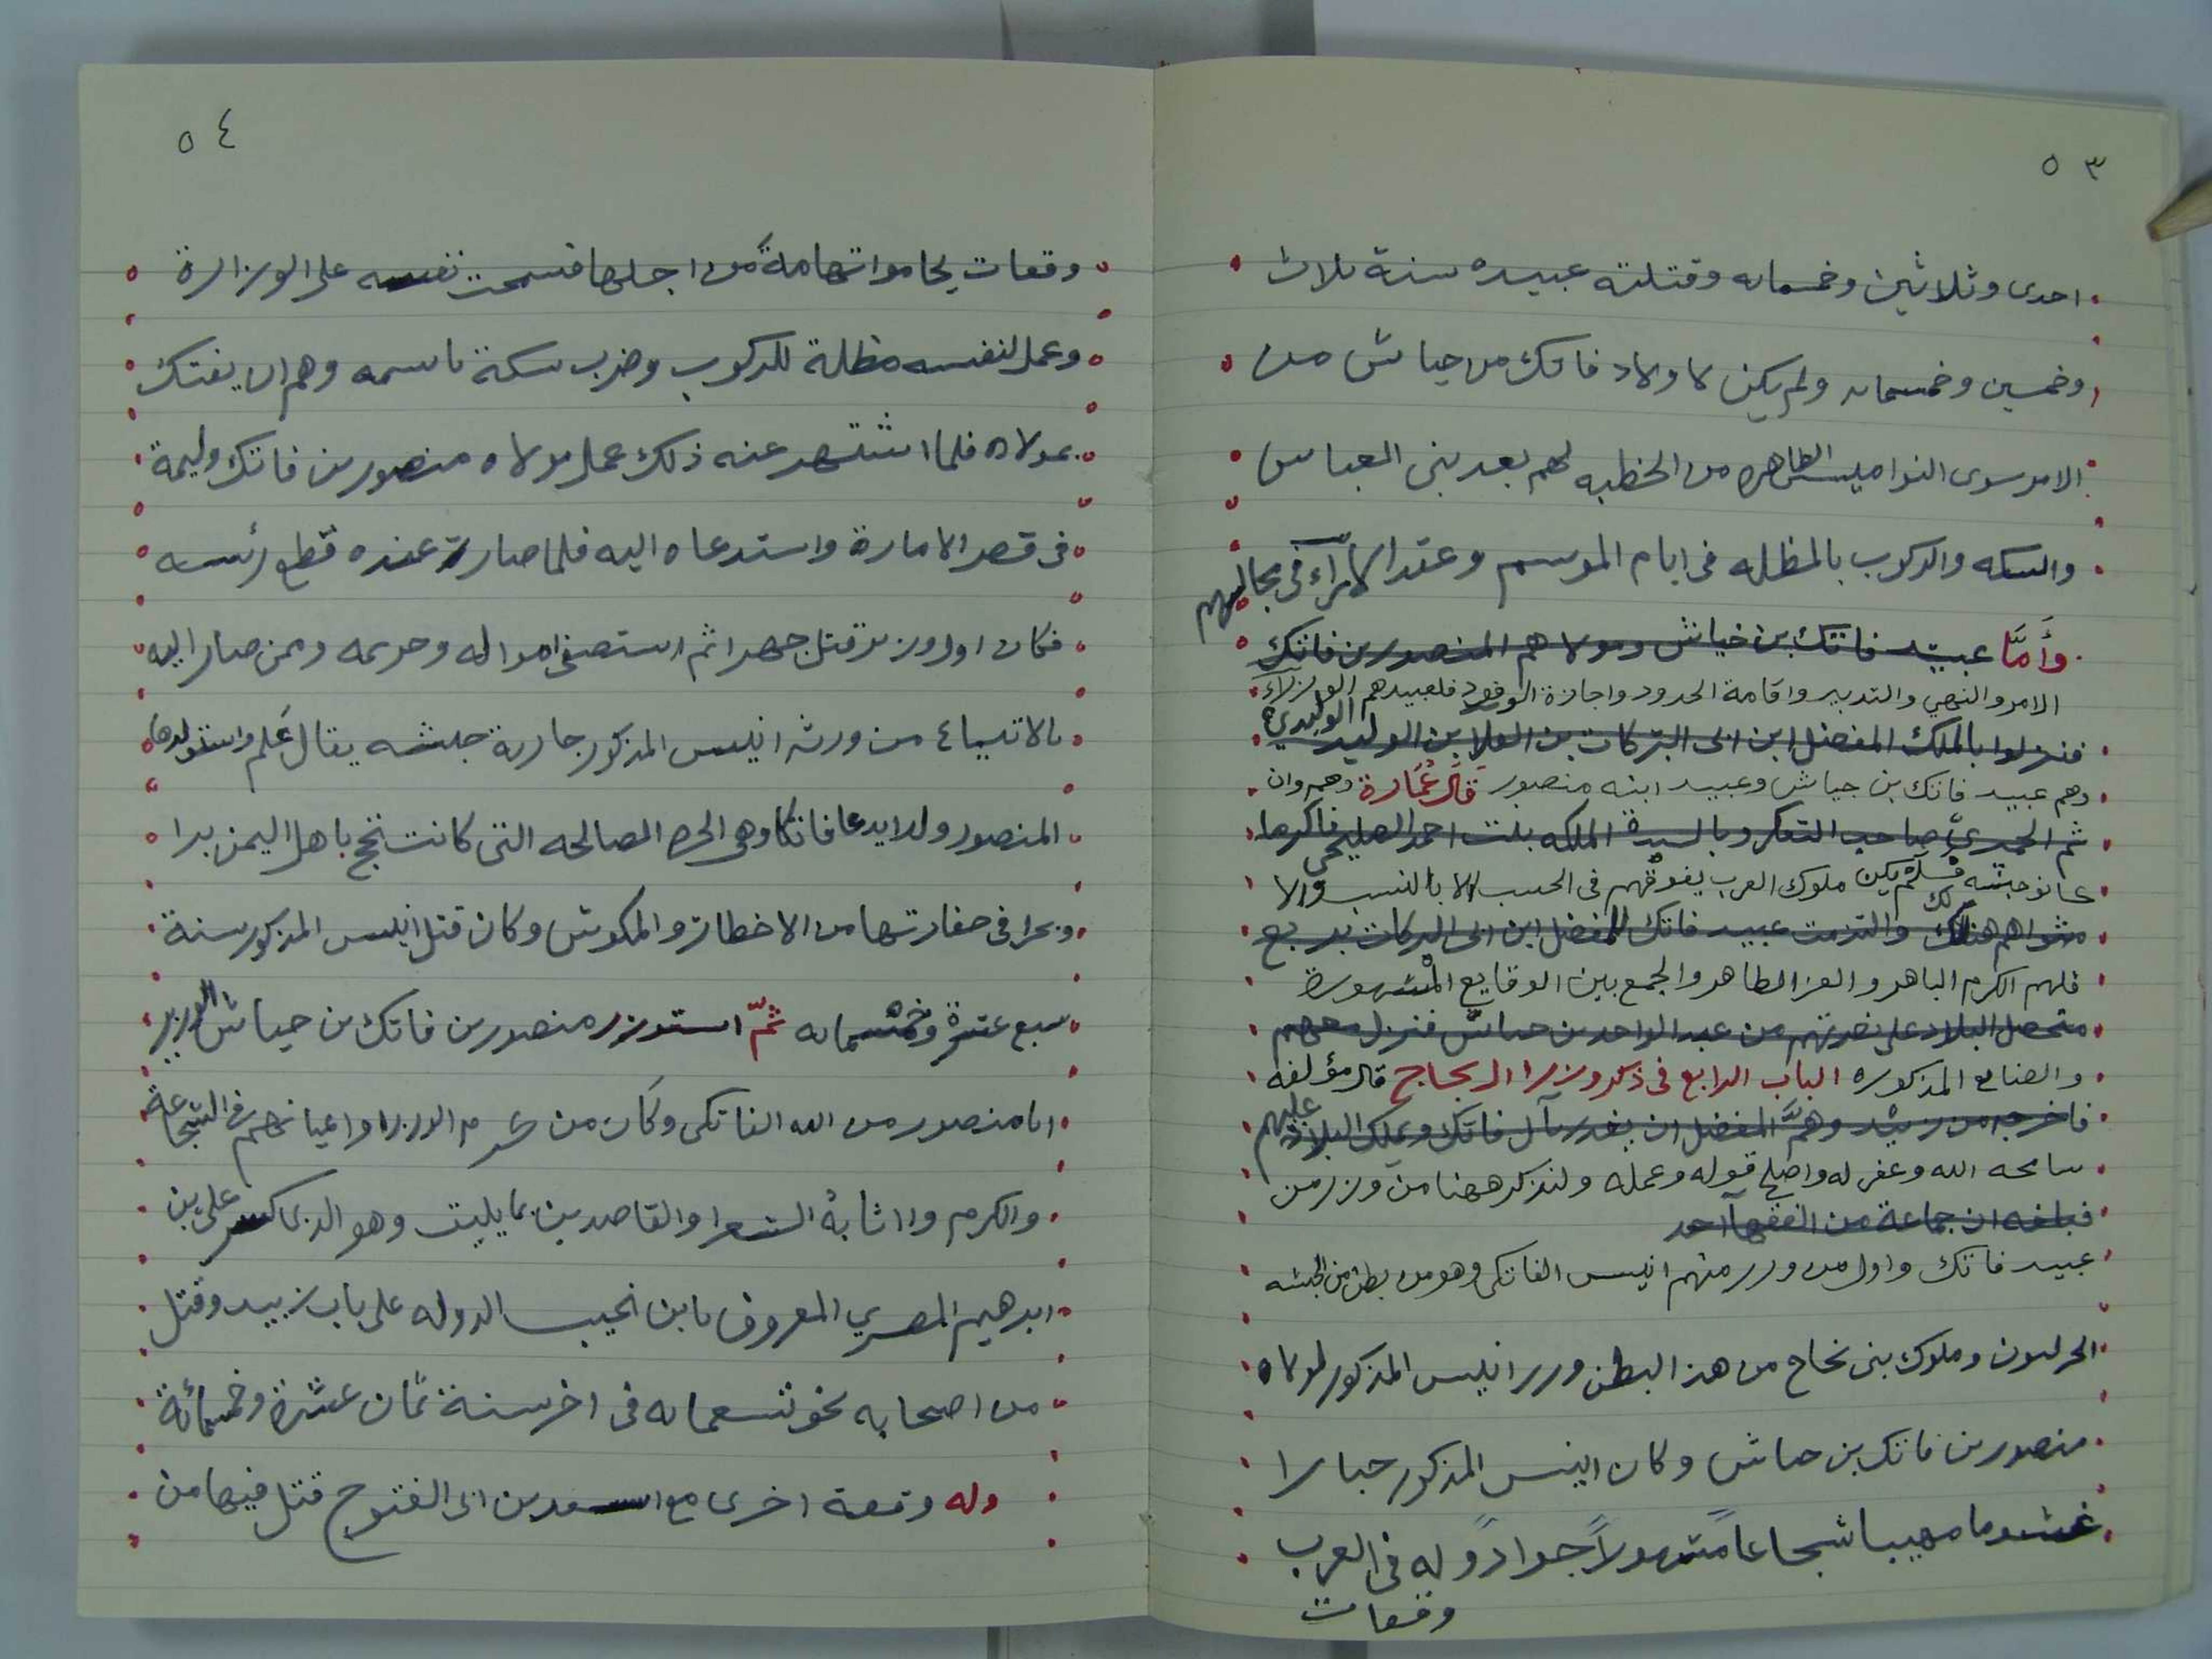 ٥٣
احدى وثلاثين وخمسمايه وقتلته عبيده سنة ثلاث
وخمسين وخمسمايه ولم يكن لاولاد فاتك من جياش من
الامر سوى النواميس الظاهره من الخطبه لهم بعد بنى العباس
والسكه والركوب بالمظله فى ايام الموسم وعقد الآرآء فى مجالسهم
وأمَّا عبيد فاتك بن خياش ومولاهم المنصور بن فاتك
الامر والنهي والتدبير واقامة الحدود واجازة الوفود فلعبيدهم الوزرآء
فنزلوا بالملك المفضل ابن ابى البركات بن العلا بن الوليد الوليدي
وهم عبيد فاتك بن جياش وعبيد ابنه منصور قال عُمَارة وهم وان
ثم الحميري صاحب التعكر وبالسيدة الملكه بنت احمد الصليحى فاكرما
كانو حبشه فلم يكن ملوك العرب يفوقهم فى الحسب الا بالنسب والا
مثواهم هنالك والتزمت عبيد فاتك للمفضل ابن ابى البركات بربع
فلهم الكرم الباهر والعز الطاهر والجمع بين الوقايع المشهورة
متحصل البلاد على نصرتهم من عبد الواحد بن جياش فنزل معهم
والصنايع المذكوره الباب الرابع فى ذكر وزرا ال نجاح قال مؤلفه
فاخرجه من زبيد وهمَّ المفضل ان يغدر بآل فاتك ويملك البلاد عليهم
سامحه الله وغفر له واصلح قوله وعمله ولنذكر ههنا من وزر من
فبلغه ان جماعة من الفقهآ احد
عبيد فاتك واول من وزر منهم انيس الفاتكى وهو من بطن من الحبشه
الجزليون وملوك بنى نجاح من هذ البطن وزر انيس المذكور لمولاه
منصور بن فاتك بن جياش وكان انيس المذكور جبارا
غشوما مهيبا شجاعاً متهولاً جوادً وله فى العرب
وقعات
٥٤
وقعات يحاموا تهامة من اجلها فسمحت نفسه على الوزارة
وعمل لنفسه مظلة للركوب وضرب سكة باسمه وهم ان يفتك
بمولاه فلما اشتهر عنه ذلك عمل مولاه منصور بن فاتك وليمة
فى قصر الامارة واستدعاه اليه فلما صار عنده قطع رئسه
فكان اول وزير قتل جهرا ثم استصفى امواله وحريمه وممن صار اليه
بالاتياع من ورثه انيس المذكور جارية حبشه يقال عَلم واستولدها
المنصور ولدا يدعا فاتكا وهى الحره الصالحه التى كانت تحج باهل اليمن برا
وبحرا فى خفارتها من الاخطار والمكوش وكان قتل انيس المذكور سنة
سبع عشرة وخمسمايه ثمّ استوزر منصور بن فاتك بن جياش الوزير
ابا منصور من الله الفاتكى وكان من كرم الوزرا واعيانهم فى الشجاعة
والكرم واثابة الشعرا والقاصدين بما يليق وهو الذى كسر على بن
ابرهيم المصري المعروف بابن نجيب الدوله على باب زبيد وقتل
من اصحابه نحو تسعمايه فى اخر سنة ثمان عشرة وخمسمائة
وله وقعة اخرى مع اسعد بن ابى الفتوح قتل فيها من